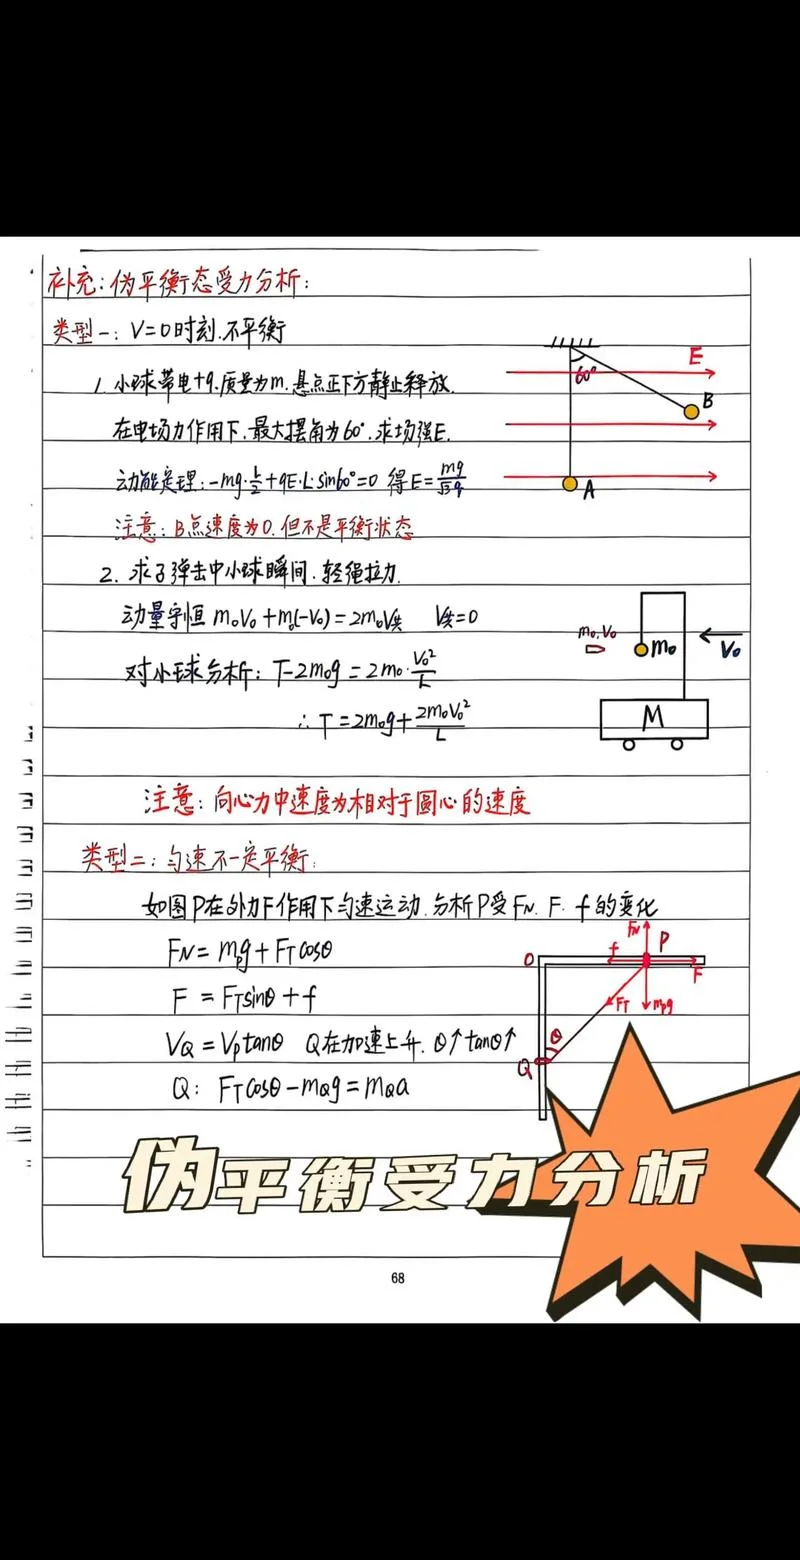 补充:伪平衡态受力分析:
类型一:V=0时刻.不平衡
1.小球带电+q.质量为m.悬点正下方静止释放.
在电场力作用下.最大摆角为60°.求场强E.
动能定理:-mg·L/2+qE·L·sin60°=0 得E=mg/√3q
注意:B点速度为0.但不是平衡状态
E
60°
B
A
2.求子弹击中小球瞬间.轻绳拉力.
动量守恒 m₀V₀+m₀(-V₀)=2m₀V共 V共=0
对小球分析:T-2m₀g=2m₀·V₀²/L
∴T=2m₀g+2m₀V₀²/L
m₀,V₀
m₀
V₀
M
注意:向心力中速度为相对于圆心的速度
类型二:匀速不一定平衡:
如图P在外力F作用下匀速运动.分析P受FN.F.f的变化
FN=mpg+FTcosθ
F=FTsinθ+f
VQ=Vptanθ Q在加速上升.θ↑tanθ↑
Q:FTcosθ-mQg=mQa
FN
P
f
O
F
FT
mpg
θ
Q
伪平衡受力分析
68